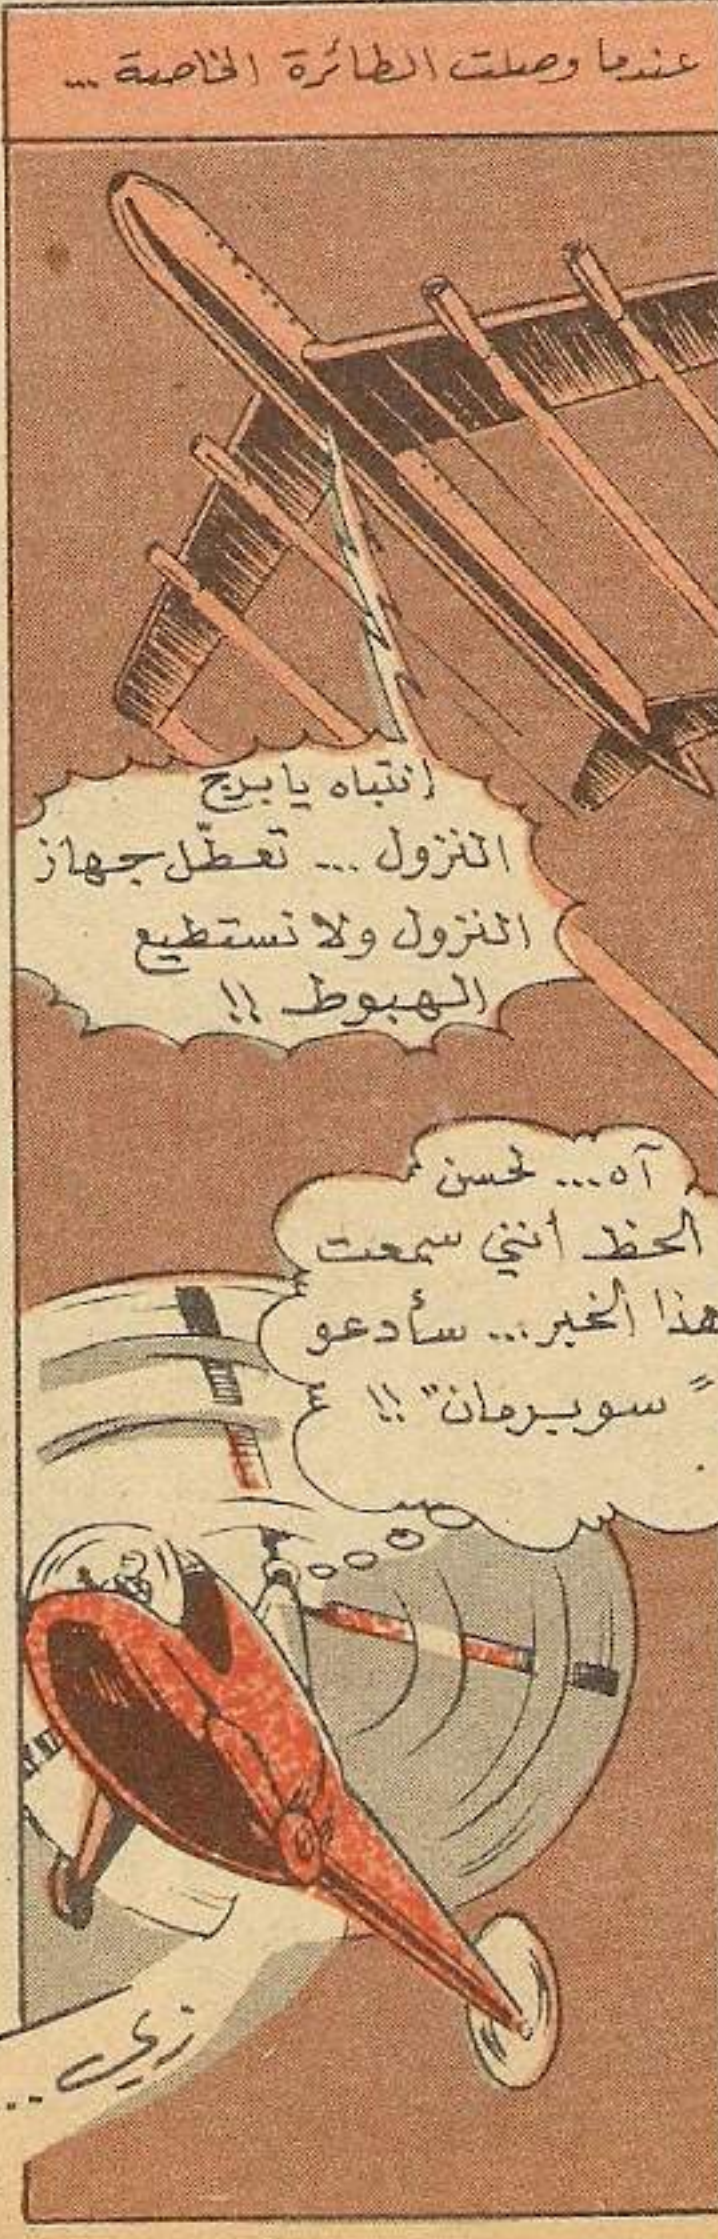 عندما وصلت الطائرة الخاصة ...
إنتباه يا برج
النزول ... تعطّل جهاز
النزول ولا نستطيع
الهبوط !!
آه ... لحسن
الحظ أنني سمعت
هذا الخبر ... سأدعو
"سوبرمان" !!
زي ..